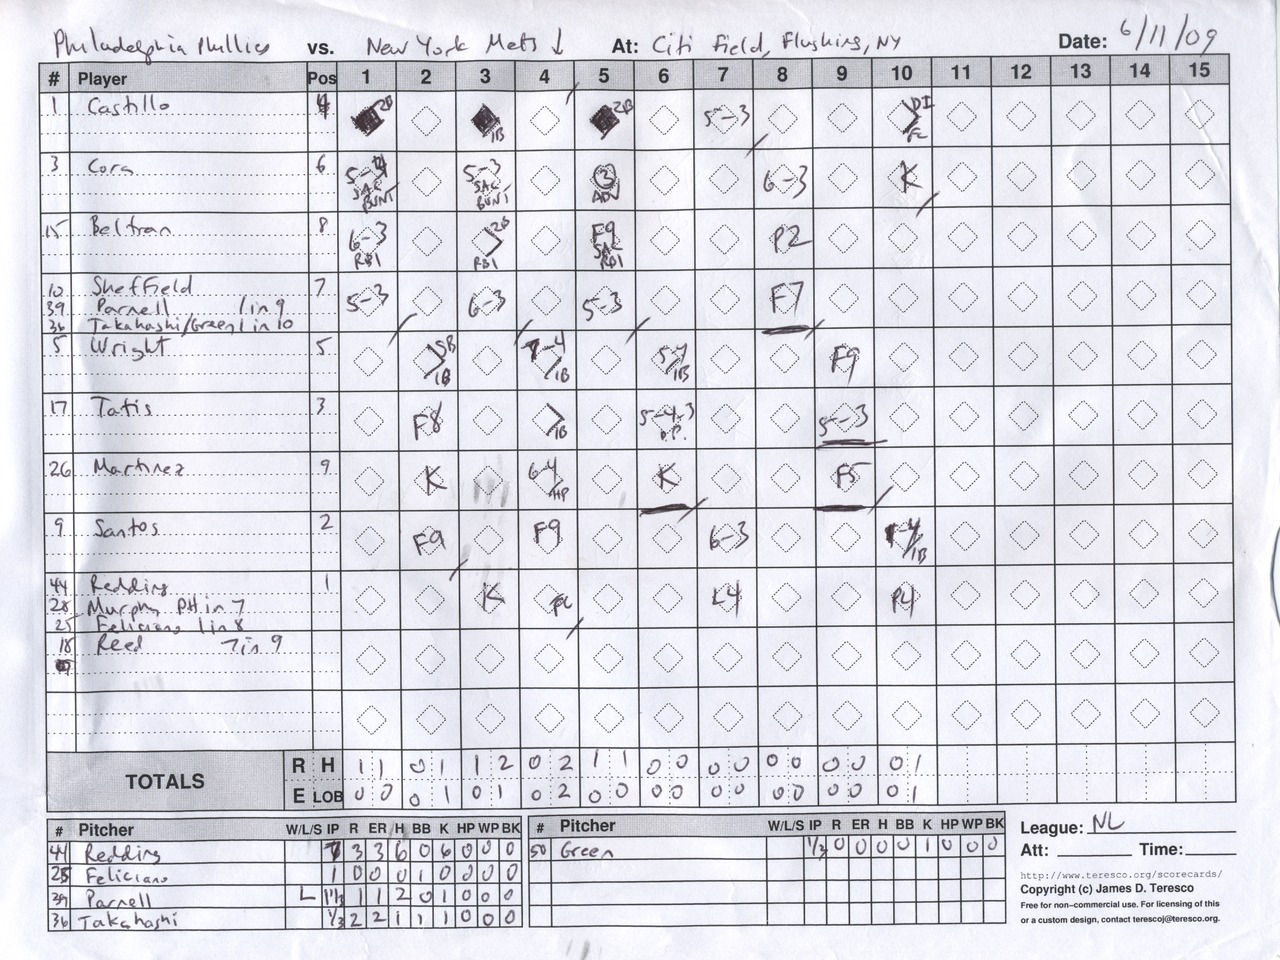 Philadelphia Phillies vs. New York Mets ↓ At: Citi Field, Flushing, NY Date: 6/11/09
# Player Pos 1 2 3 4 5 6 7 8 9 10 11 12 13 14 15
1 Castillo 4 2B 1B 2B 5-3 DI FC
3 Cora 6 5-4 SAC BUNT 5-3 SAC BUNT 3 ADV 6-3 K
15 Beltran 8 6-3 RBI 2B RBI F9 SAC RBI P2
10 Sheffield 7 5-3 6-3 5-3 F7
39 Parnell 1 in 9
36 Takahashi/Green 1 in 10
5 Wright 5 SB 1B 1B 5-4 1B F9
17 Tatis 3 F8 1B 5-4-3 D.P. 5-3
26 Martinez 9 K 6-4 K F5
9 Santos 2 F9 F9 6-3 1B
44 Redding 1 K FC L4 P4
28 Murphy PH in 7
25 Feliciano 1 in 8
18 Reed 7 in 9
TOTALS
R H 1 1 0 1 1 2 0 2 1 1 0 0 0 0 0 0 0 0 0 1
E LOB 0 0 0 1 0 1 0 2 0 0 0 0 0 0 0 0 0 0 0 1
# Pitcher W/L/S IP R ER H BB K HP WP BK
44 Redding 7 3 3 6 0 6 0 0 0
25 Feliciano 1 0 0 0 1 0 0 0 0
39 Parnell L 1 1/3 1 1 2 0 1 0 0 0
36 Takahashi 1/3 2 2 1 1 1 0 0 0
# Pitcher W/L/S IP R ER H BB K HP WP BK
50 Green 1/3 0 0 0 0 1 0 0 0
League: NL
Att: Time:
http://www.teresco.org/scorecards/
Copyright (c) James D. Teresco
Free for non-commercial use. For licensing of this
or a custom design, contact terescoj@teresco.org.